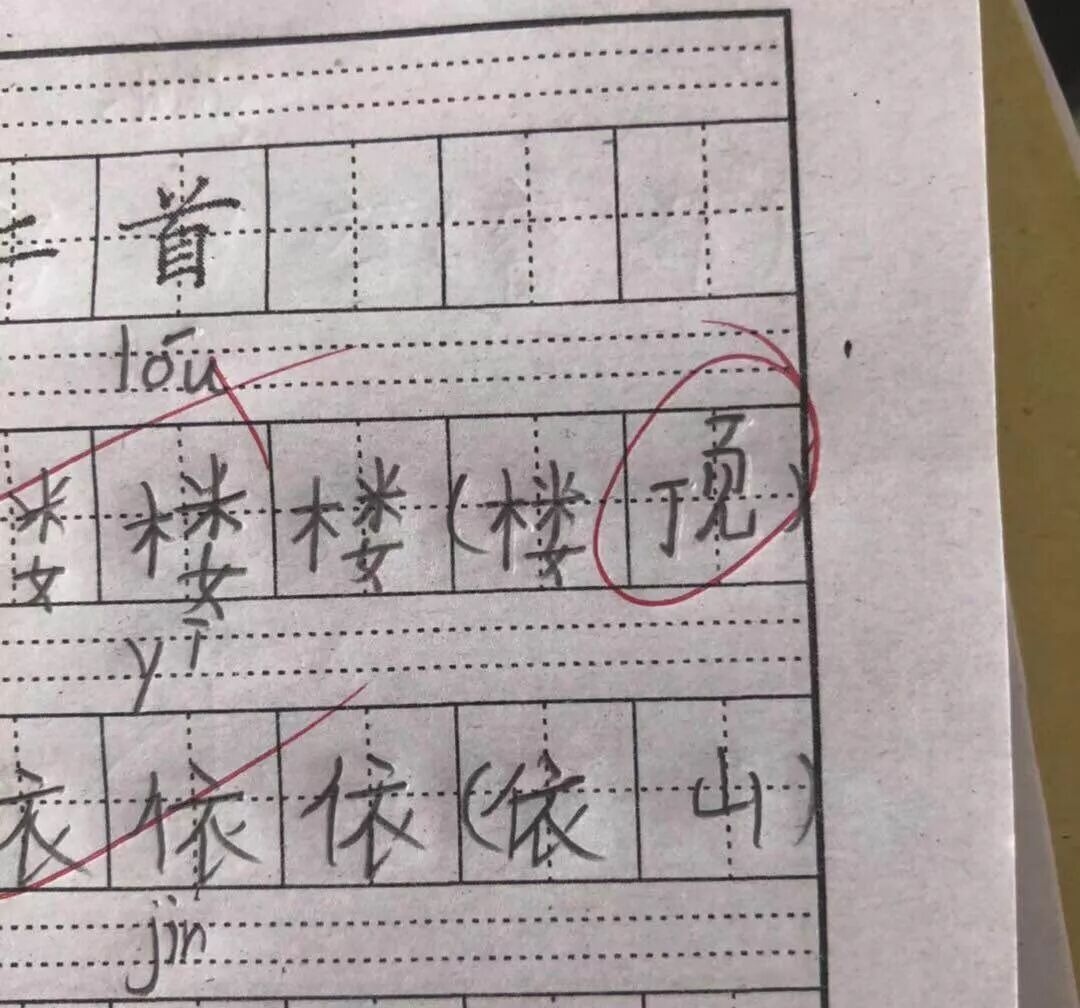 首
lóu
娄 楼 楼 (楼 )
yī
衣 依 依 (依 山)
jìn